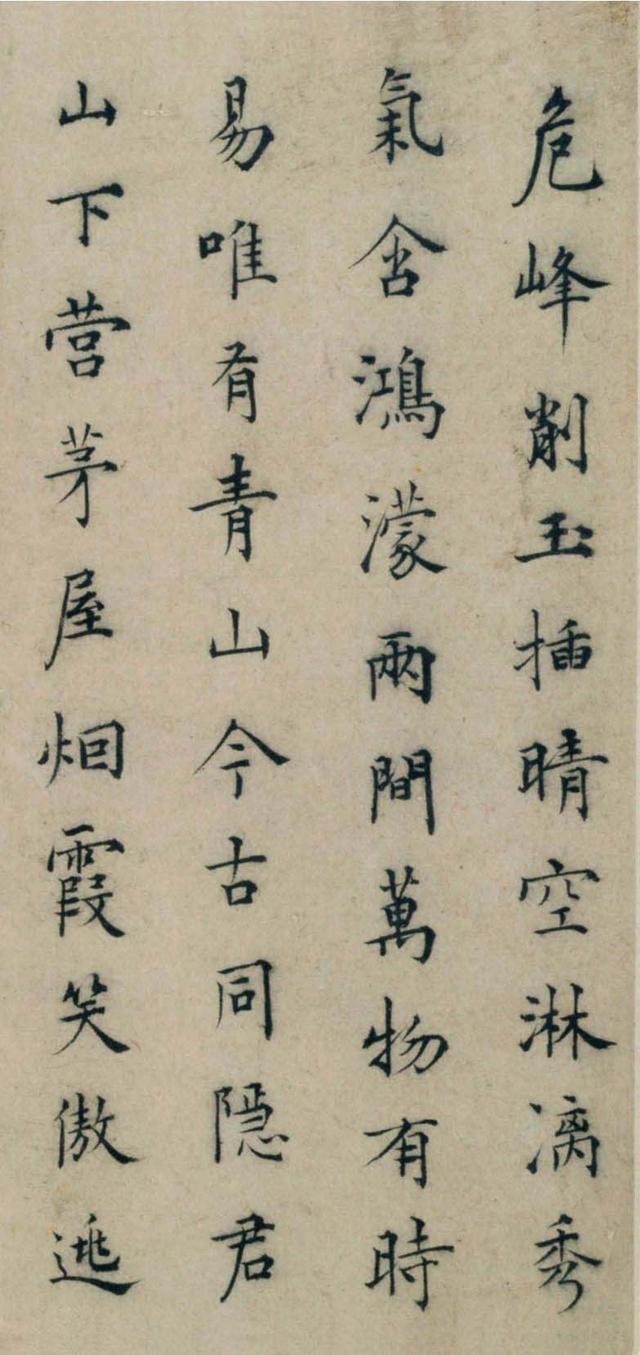 危峰削玉插晴空淋漓秀
氣含鴻濛兩間萬物有時
易唯有青山今古同隠君
山下营茅屋烟霞笑傲逃